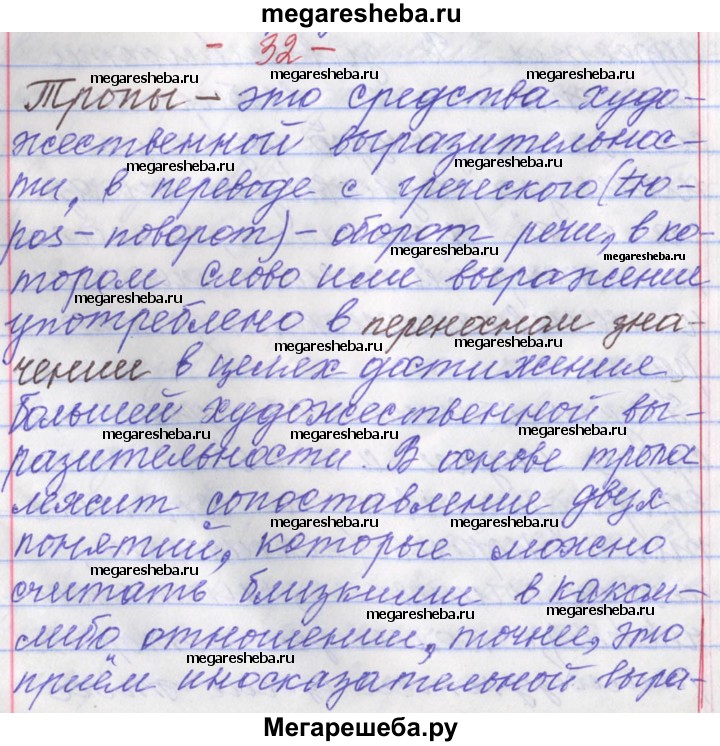 megaresheba.ru
- 32 -
megaresheba.ru megaresheba.ru megaresheba.ru
Тропы – это средства худо-
жественной выразительнос-
megaresheba.ru megaresheba.ru
ти, в переводе с греческого (tro-
pos – поворот) – оборот речи, в ко-
megaresheba.ru megaresheba.ru
тором слово или выражение
megaresheba.ru megaresheba.ru
употреблено в переносном зна-
megaresheba.ru megaresheba.ru
чении в целях достижения
большей художественной вы-
megaresheba.ru megaresheba.ru megaresheba.ru
разительности. В основе тропа
лежит сопоставление двух
megaresheba.ru megaresheba.ru
понятий, которые можно
megaresheba.ru
считать близкими в каком-
megaresheba.ru megaresheba.ru
либо отношении, точнее, это
megaresheba.ru megaresheba.ru
приём иносказательной выра-
Мегарешеба.ру